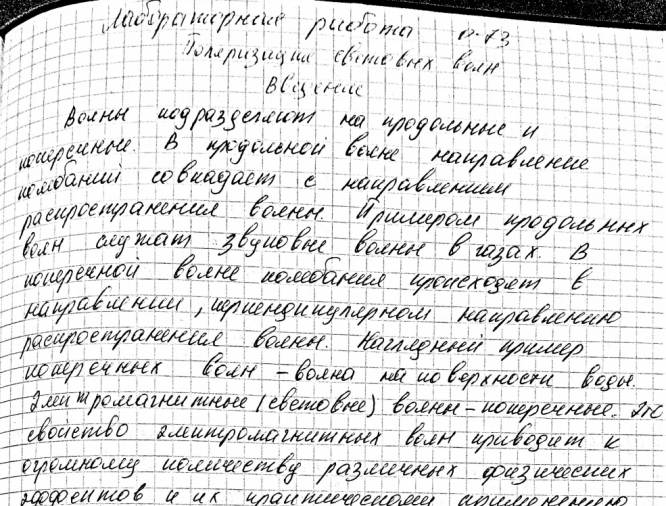 Лабораторная работа № 73
Поляризация световых волн
Введение
Волны подразделяют на продольные и
поперечные. В продольной волне направление
колебаний совпадает с направлением
распространения волны. Примером продольных
волн служат звуковые волны в газах. В
поперечной волне колебания происходят в
направлении, перпендикулярном направлению
распространения волны. Наглядный пример
поперечных волн - волна на поверхности воды.
Электромагнитные (световые) волны - поперечные. Это
свойство электромагнитных волн приводит к
огромному количеству различных физических
эффектов и их практическому применению